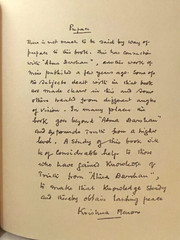 Preface
There is not much to be said by way of
preface to this book. This has connection
with "Atma Darshan", another work of
mine published a few years ago. Some of
the subjects dealt with in that book
are made clear in this and some
others treated from different angles
of vision. In many places this
book goes beyond "Atma Darshan"
and expounds Truth from a higher
level. A study of this book will
be of considerable help to those
who have gained knowledge of
Truth from "Atma Darshan",
to make that knowledge steady
and thereby obtain lasting peace
Krishna Menon